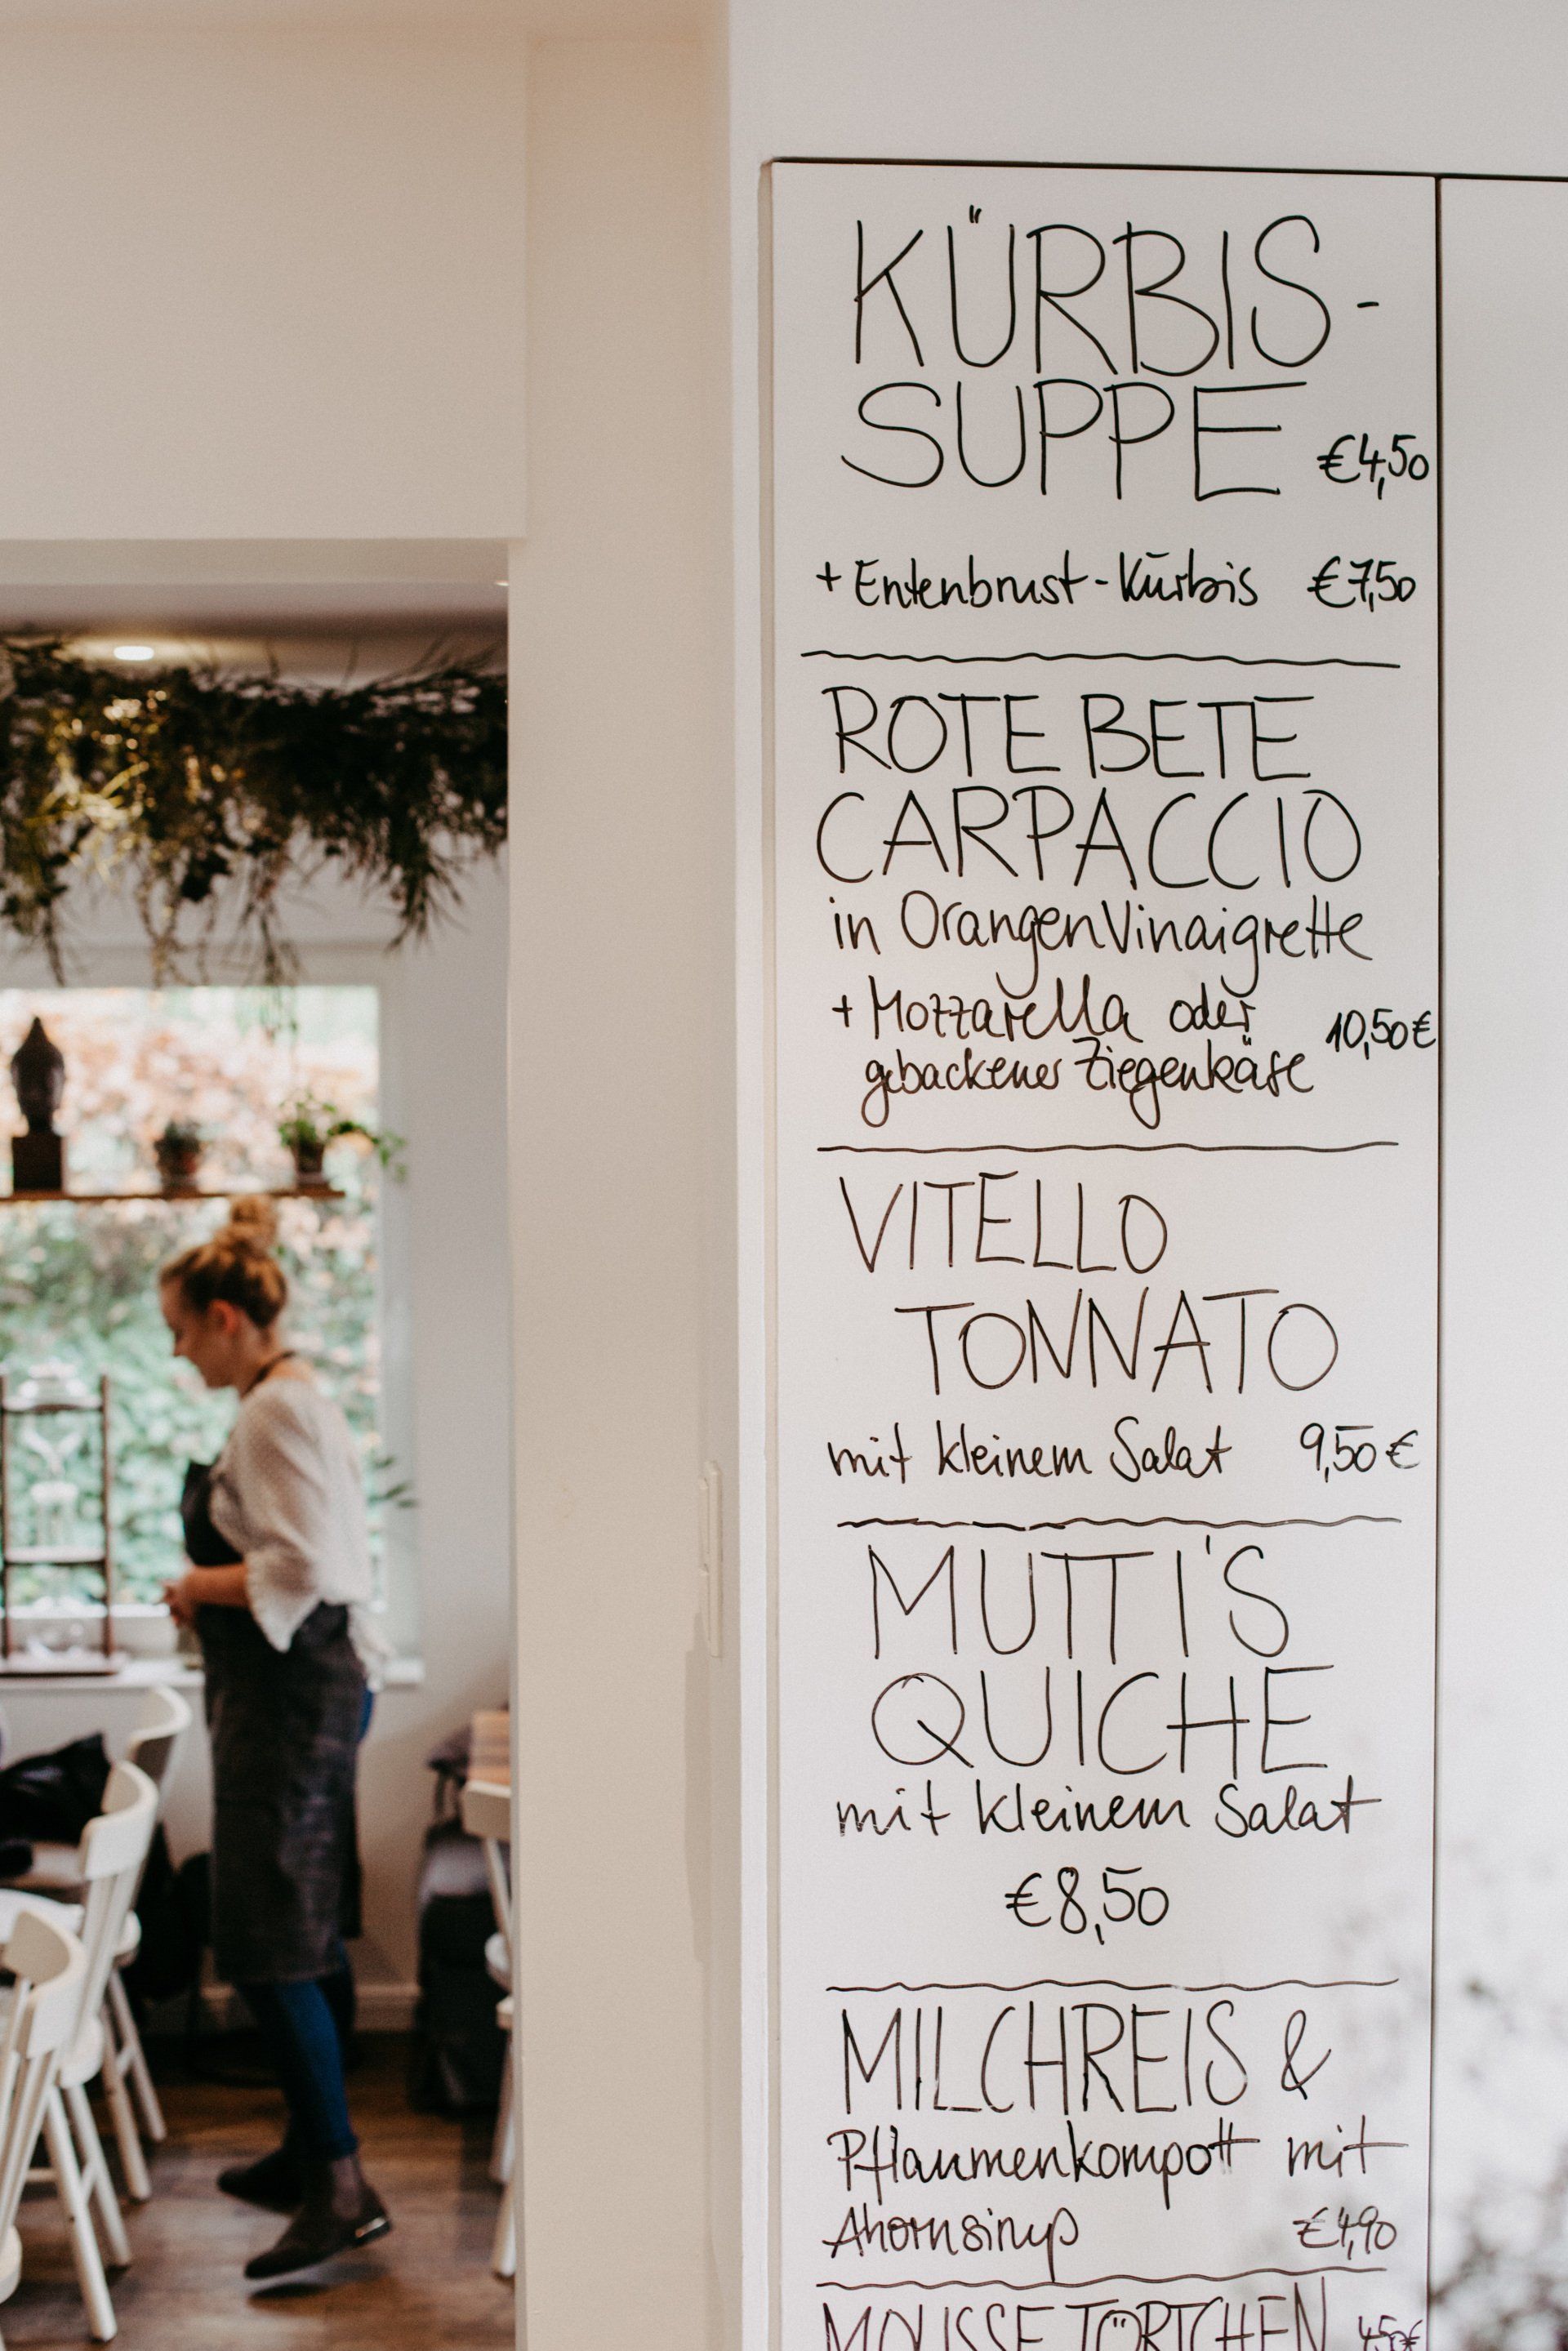 KÜRBIS-
SUPPE €4,50
+ Entenbrust-Kürbis €7,50
ROTE BETE
CARPACCIO
in OrangenVinaigrette
+ Mozzarella oder
gebackener Ziegenkäse 10,50€
VITELLO
TONNATO
mit kleinem Salat 9,50€
MUTTI'S
QUICHE
mit kleinem Salat
€8,50
MILCHREIS &
Pflaumenkompott mit
Ahornsirup €4,90
MOUSSE TÖRTCHEN 4,50€